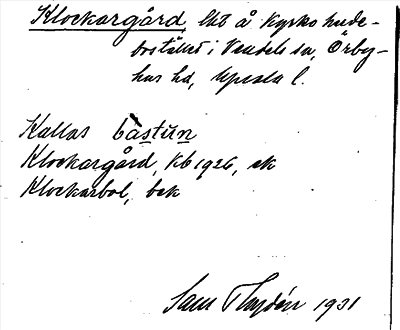 Klockargård, lht å kyrkohude-
bostället i Vendels sn, Örby-
hus hd, Uppsala l.
Kallas bàstùn
Klockargård, Kb 1926, ek
Klockarbol, bek
Sam 1931